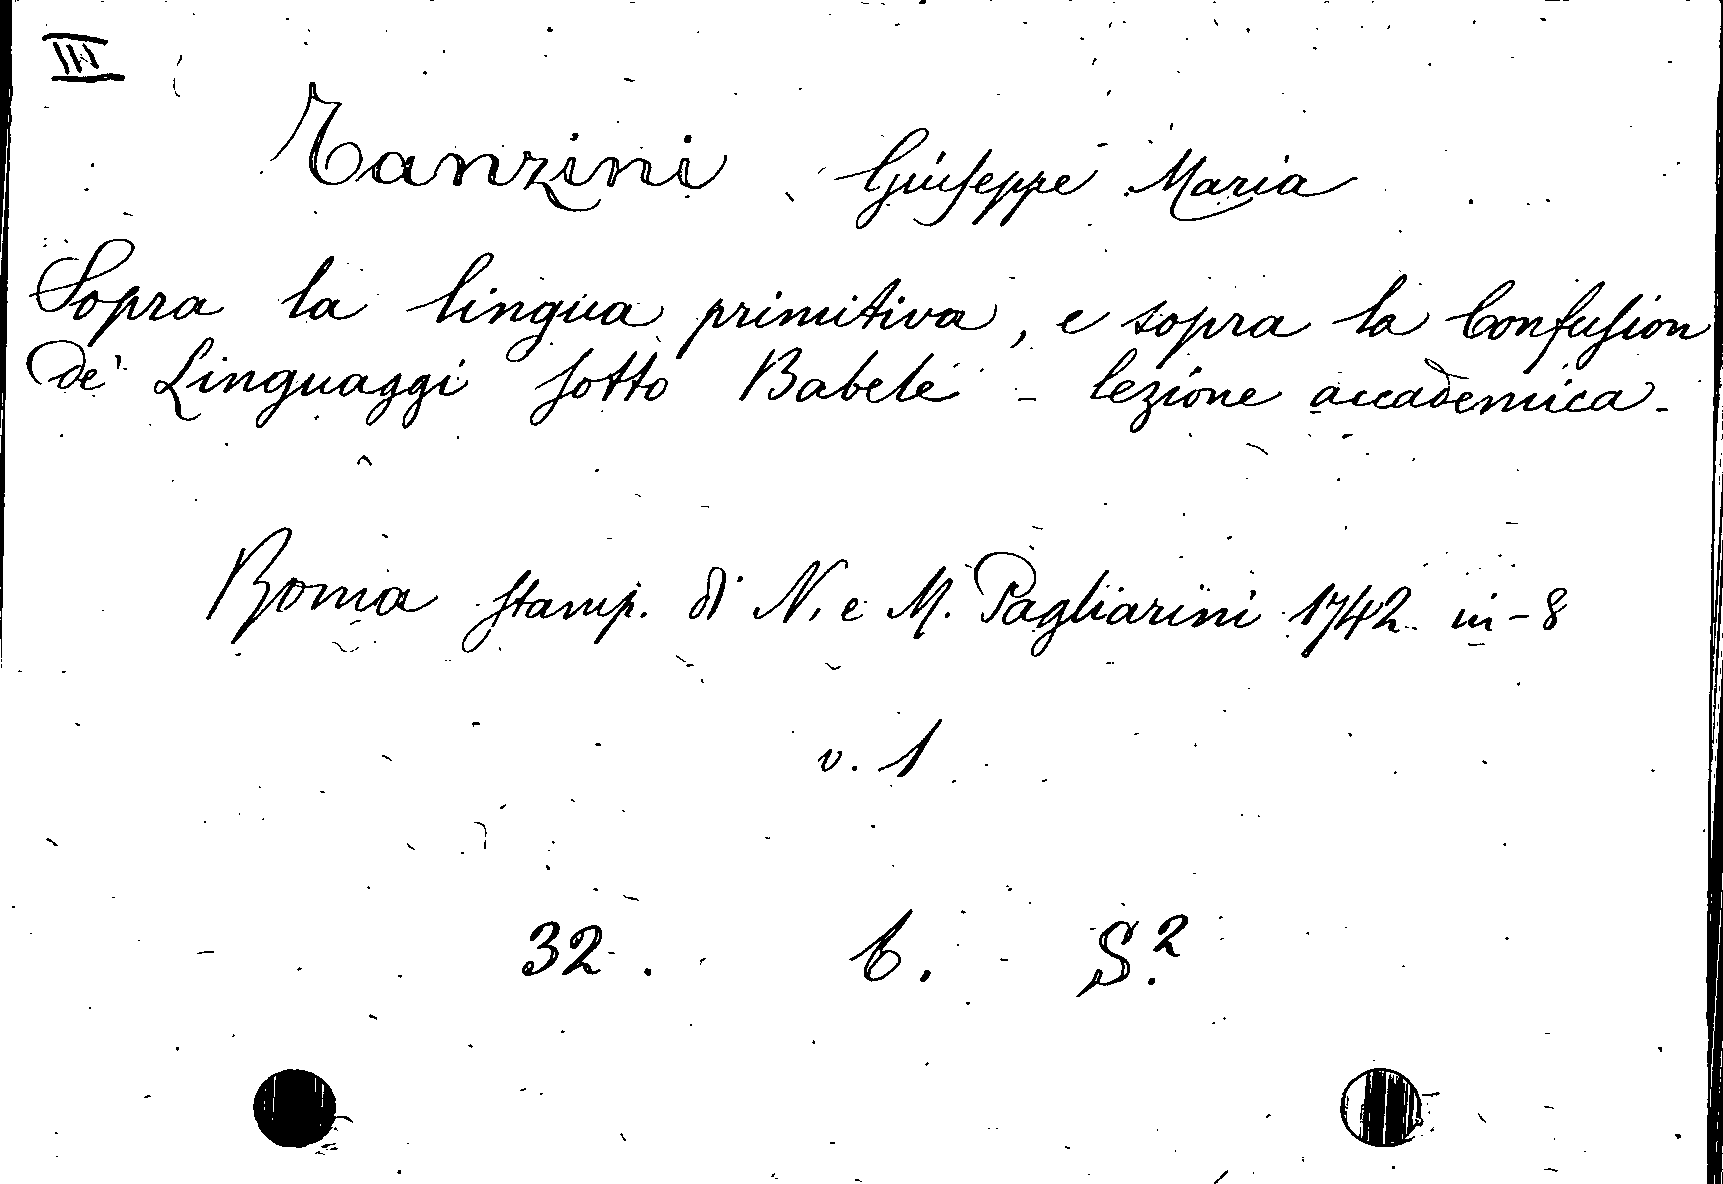 III
Tanzini Giuseppe Maria
Sopra la lingua primitiva, e sopra la Confusion
de' Linguaggi sotto Babele - lezione accademica -
Roma stamp. di N. e M. Pagliarini 1742 in-8
v. 1
32. 6. S.²